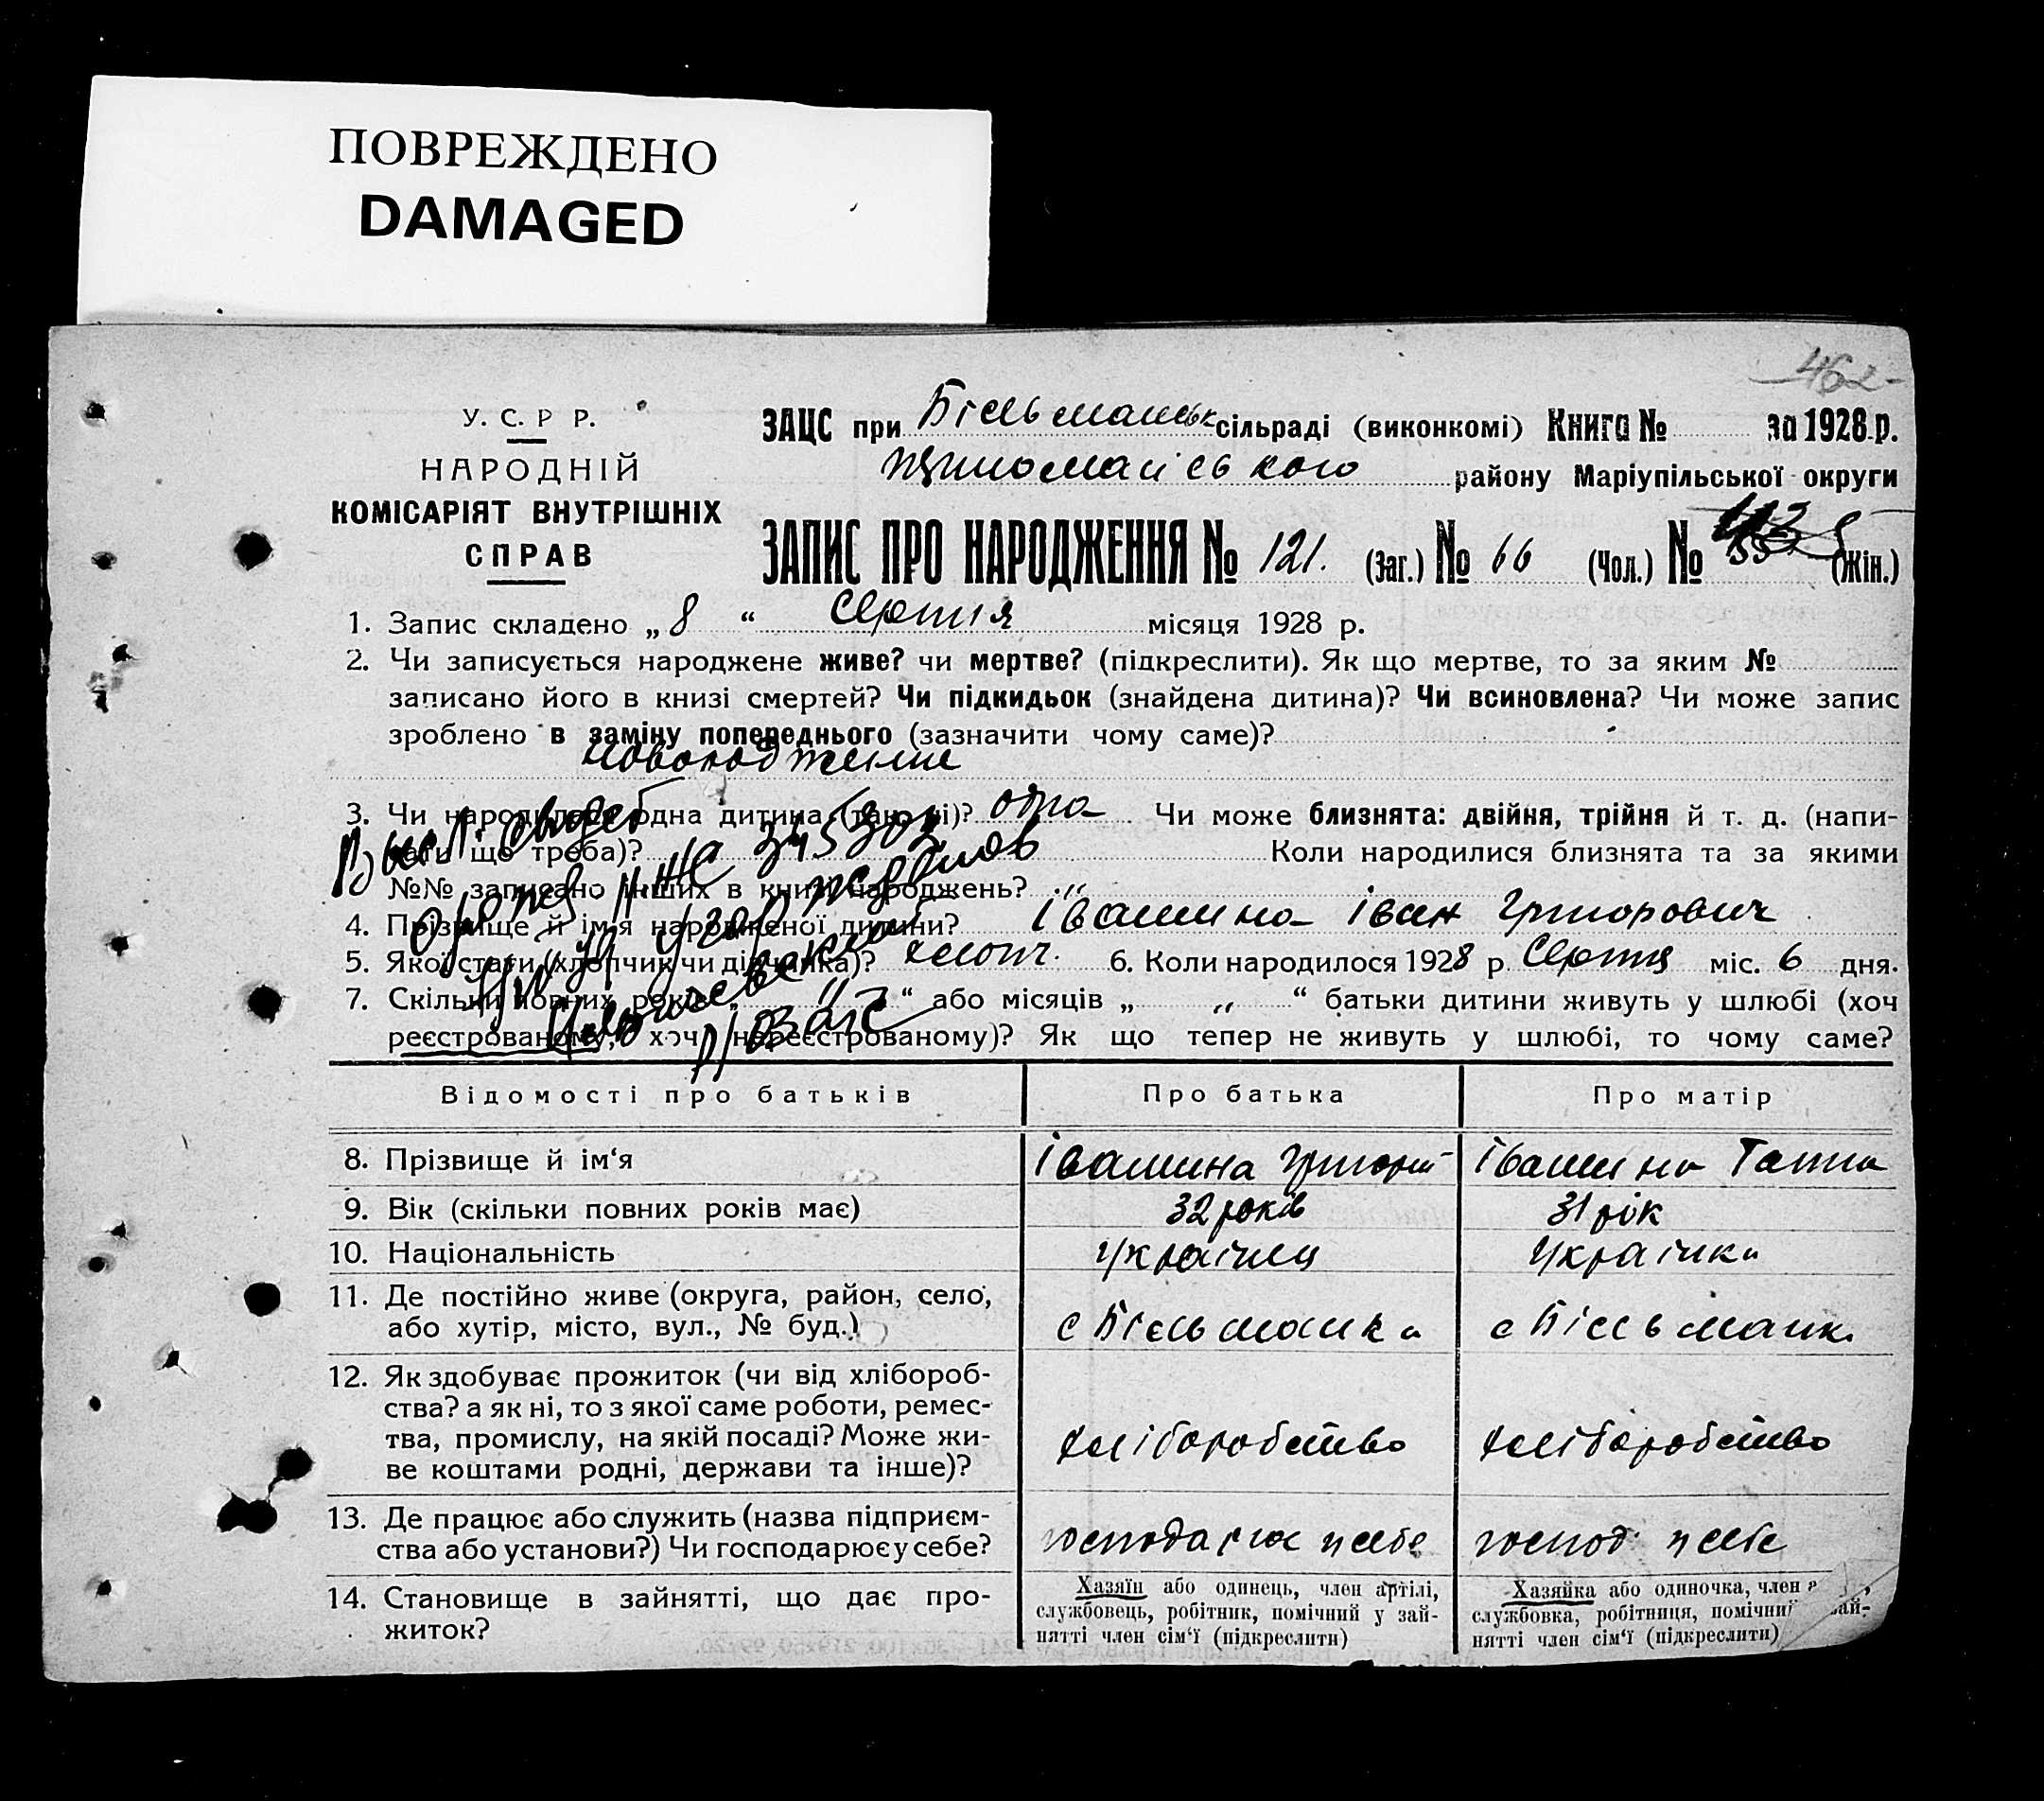 ПОВРЕЖДЕНО
DAMAGED
462
У. С. Р Р.
НАРОДНІЙ
КОМІСАРІЯТ ВНУТРІШНІХ
СПРАВ
ЗАЦС при Більманськ сільраді (виконкомі) Книга № за 1928 р.
району Маріупільської округи
ЗАПИС ПРО НАРОДЖЕННЯ № 121. (Заг.) № 66 (Чол.) № (Жін.)
1. Запис складено „ 8 “ Серпня місяця 1928 р.
2. Чи записується народжене живе? чи мертве? (підкреслити). Як що мертве, то за яким №
записано його в книзі смертей? Чи підкидьок (знайдена дитина)? Чи всиновлена? Чи може запис
зроблено в заміну попереднього (зазначити чому саме)?
3. Чи народилася одна дитина (так, ні)? одна Чи може близнята: двійня, трійня й т. д. (напи-
сати що треба)? Коли народилися близнята та за якими
№№ записано інших в книзі народжень?
345302
4. Прізвище й ім'я народженої дитини? Івашина Іван Григорович
5. Якої стати (хлопчик чи дівчинка)? хлопч. 6. Коли народилося 1928 р. Серпня міс. 6 дня.
7. Скільки повних років „ “ або місяців „ “ батьки дитини живуть у шлюбі (хоч
реєстрованому, хоч нереєстрованому)? Як що тепер не живуть у шлюбі, то чому саме?
Відомості про батьків Про батька Про матір
8. Прізвище й ім‘я Івашина Григорій Івашина Ганна
9. Вік (скільки повних років має) 32 років 31 рік
10. Національність українец українка
11. Де постійно живе (округа, район, село,
або хутір, місто, вул., № буд.) с Більманка с Більманк
12. Як здобуває прожиток (чи від хлібороб-
ства? а як ні, то з якої саме роботи, ремес-
тва, промислу, на якій посаді? Може жи-
ве коштами родні, держави та інше)? хліборобство хліборобство
13. Де працює або служить (назва підприєм-
ства або установи?) Чи господарює у себе? господарює у себе господ. у себе
14. Становище в зайнятті, що дає про-
житок?
Хазяїн або одинець, член артілі,
службовець, робітник, помічний у зай-
нятті член сім‘ї (підкреслити)
Хазяйка або одиночка, член
службовка, робітниця, помічни зай-
нятті член сім‘ї (підкреслити)